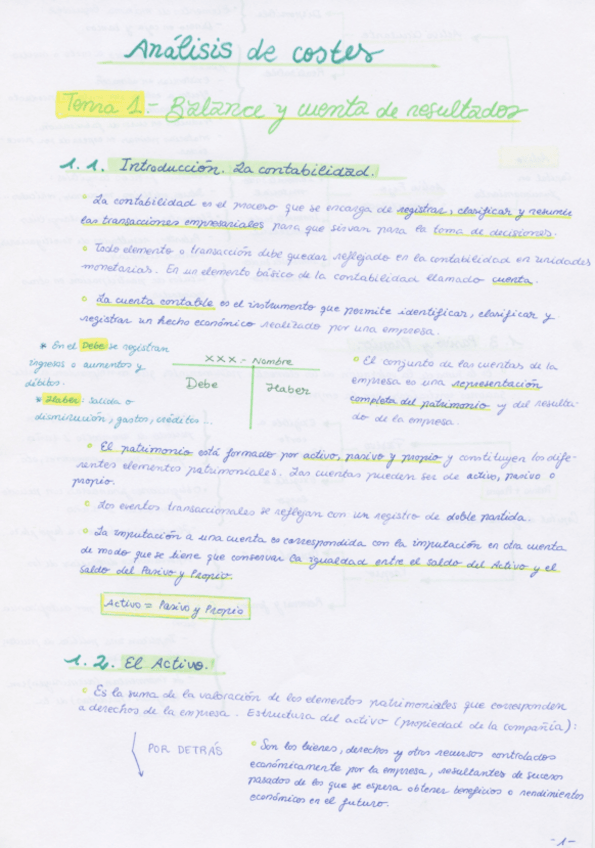 Análisis de costes
Tema 1.- Balance y cuenta de resultados
1.1. Introducción. La contabilidad.
• La contabilidad es el proceso que se encarga de registrar, clasificar y resumir
las transacciones empresariales para que sirvan para la toma de decisiones.
• Todo elemento o transacción debe quedar reflejado en la contabilidad en unidades
monetarias. En un elemento básico de la contabilidad llamado cuenta.
• La cuenta contable es el instrumento que permite identificar, clasificar y
registrar un hecho económico realizado por una empresa.
* En el Debe se registran
ingresos o aumentos y
débitos.
* Haber: salida o
disminución, gastos, créditos...
XXX.- Nombre
Debe
Haber
• El conjunto de las cuentas de la
empresa es una representación
completa del patrimonio y del resulta-
do de la empresa.
• El patrimonio está formado por activo, pasivo y propio y constituyen los dife-
rentes elementos patrimoniales. Las cuentas pueden ser de activo, pasivo o
propio.
• Los eventos transaccionales se reflejan con un registro de doble partida.
• La imputación a una cuenta es correspondida con la imputación en otra cuenta
de modo que se tiene que conservar la igualdad entre el saldo del Activo y el
saldo del Pasivo y Propio.
Activo = Pasivo y Propio
1.2. El Activo.
• Es la suma de la valoración de los elementos patrimoniales que corresponden
a derechos de la empresa. Estructura del activo (propiedad de la compañía):
POR DETRÁS
• Son los bienes, derechos y otros recursos controlados
económicamente por la empresa, resultantes de sucesos
pasados de los que se espera obtener beneficios o rendimientos
económicos en el futuro.
-1-